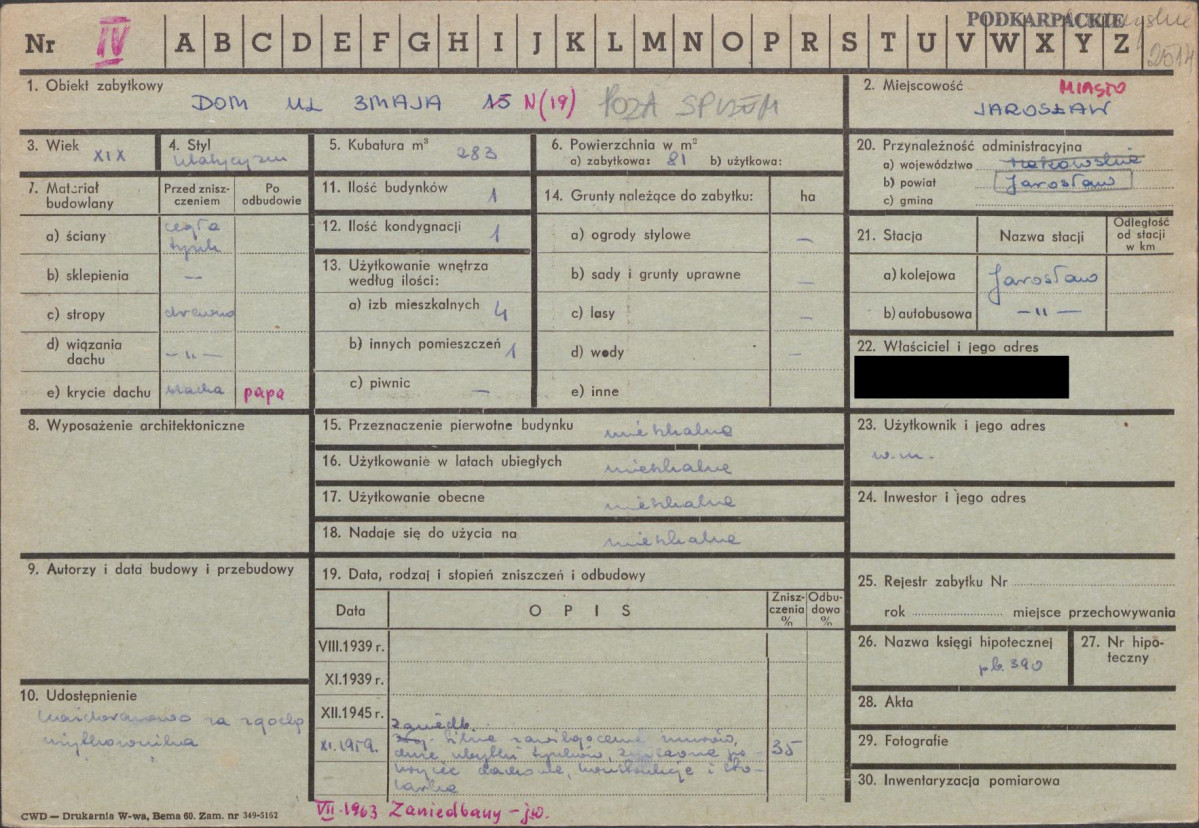 PODKARPACKIE
Nr IV A B C D E F G H I J K L M N O P R S T U V W X Y Z
2014
1. Obiekt zabytkowy
DOM UL 3 MAJA 15 N(19) POZA SPISEM
2. Miejscowość
MIASTO
JAROSŁAW
3. Wiek
XIX
4. Styl
klasycyzm
5. Kubatura m³ 283
6. Powierzchnia w m²
a) zabytkowa: 81 b) użytkowa:
20. Przynależność administracyjna
a) województwo
b) powiat Jarosław
c) gmina
7. Materiał budowlany
Przed zniszczeniem
Po odbudowie
a) ściany cegła tynk
b) sklepienia —
c) stropy drewno
d) wiązania dachu —"—
e) krycie dachu blacha papa
11. Ilość budynków 1
12. Ilość kondygnacji 1
13. Użytkowanie wnętrza według ilości:
a) izb mieszkalnych 4
b) innych pomieszczeń 1
c) piwnic —
14. Grunty należące do zabytku: ha
a) ogrody stylowe —
b) sady i grunty uprawne —
c) lasy —
d) wody —
e) inne
21. Stacja
Nazwa stacji
Odległość od stacji w km
a) kolejowa Jarosław
b) autobusowa —"—
22. Właściciel i jego adres
8. Wyposażenie architektoniczne
15. Przeznaczenie pierwotne budynku mieszkalne
16. Użytkowanie w latach ubiegłych mieszkalne
17. Użytkowanie obecne mieszkalne
18. Nadaje się do użycia na mieszkalne
23. Użytkownik i jego adres
w.m.
24. Inwestor i jego adres
9. Autorzy i data budowy i przebudowy
19. Data, rodzaj i stopień zniszczeń i odbudowy
Data
OPIS
Zniszczenia %
Odbudowa %
VIII.1939 r.
XI.1939 r.
XII.1945 r.
XI.1959. zaniedb.
silne zawilgocenie murów,
duże ubytki tynków, zniszczone po-
krycie dachowe, konstrukcje i sto-
larka
35
25. Rejestr zabytku Nr
rok miejsce przechowywania
26. Nazwa księgi hipotecznej
pb. 390
27. Nr hipoteczny
28. Akta
29. Fotografie
30. Inwentaryzacja pomiarowa
10. Udostępnienie
za zgodą
użytkownika
CWD — Drukarnia W-wa, Bema 60. Zam. nr 349-5162
VII.1963 Zaniedbany – jw.